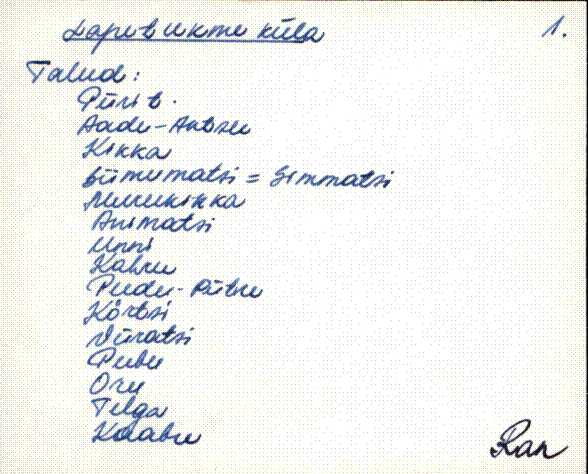 Lapetukme küla 1.
Talud:
Püri t.
Aadu-Antsu
Kikka
Siimumatsi = Simmatsi
Murukikka
Animatsi
Unni
Kahru
Pudu-Pütre
Kõrtsi
Vüratsi
Pubu
Oru
Telga
Kaabu
Ran